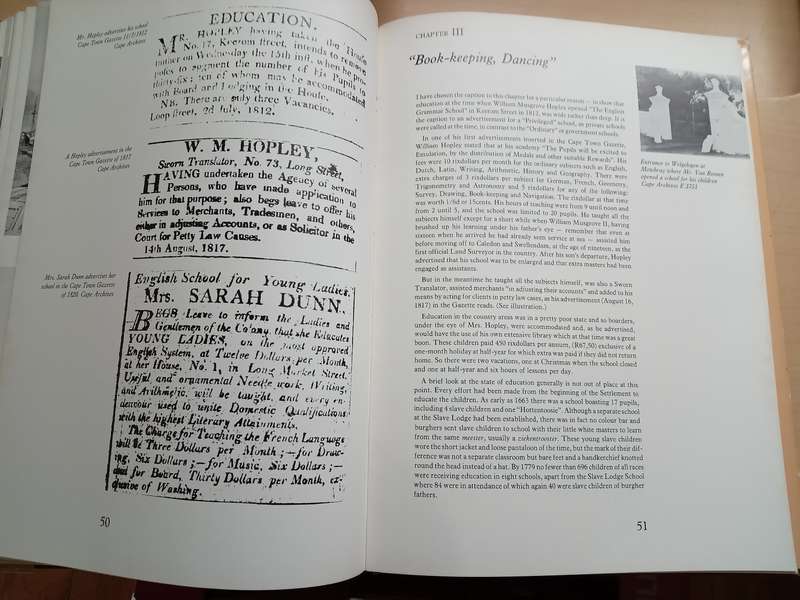 Mr. Hopley advertises his school
Cape Town Gazette 11/7/1812
Cape Archives
EDUCATION.
MR. HOPLEY having taken the House
No. 17, Keerom street, intends to remove
thither on Wednesday the 15th inst, when he pro-
poses to augment the number of his Pupils to
thirty-six; ten of whom may be accommodated
with Board and Lodging in the House.
NB. There are only three Vacancies.
Loop street, 2d July, 1812.
A Hopley advertisement in the
Cape Town Gazette of 1817
Cape Archives
W. M. HOPLEY,
Sworn Translator, No. 73, Long Street,
HAVING undertaken the Agency of several
Persons, who have made application to
him for that purpose; also begs leave to offer his
Services to Merchants, Tradesmen, and others,
either in adjusting Accounts, or as Solicitor in the
Court for Petty Law Causes.
14th August, 1817.
Mrs. Sarah Dunn advertises her
school in the Cape Town Gazette
of 1820. Cape Archives
English School for Young Ladies.
Mrs. SARAH DUNN,
BEGS Leave to inform the Ladies and
Gentlemen of the Colony, that she Educates
YOUNG LADIES, on the most approved
English System, at Twelve Dollars per Month,
at her House, No. 1, in Long Market Street.
Useful and ornamental Needle work, Writing,
and Arithmetic, will be taught, and every en-
deavour used to unite Domestic Qualifications
with the highest Literary Attainments.
The Charge for Teaching the French Language
will be Three Dollars per Month;—for Draw-
ing, Six Dollars;—for Music, Six Dollars;—
and for Board, Thirty Dollars per Month, ex-
clusive of Washing.
50
CHAPTER III
"Book-keeping, Dancing"
I have chosen the caption to this chapter for a particular reason – to show that
education at the time when William Musgrave Hopley opened "The English
Grammar School" in Keerom Street in 1812, was wide rather than deep. It is
the caption to an advertisement for a "Privileged" school, as private schools
were called at the time, in contrast to the "Ordinary" or government schools.
In one of his first advertisements inserted in the Cape Town Gazette,
William Hopley stated that at his academy "The Pupils will be excited to
Emulation, by the distribution of Medals and other suitable Rewards". His
fees were 10 rixdollars per month for the ordinary subjects such as English,
Dutch, Latin, Writing, Arithmetic, History and Geography. There were
extra charges of 3 rixdollars per subject for German, French, Geometry,
Trigonometry and Astronomy and 5 rixdollars for any of the following:
Survey, Drawing, Book-keeping and Navigation. The rixdollar at that time
was worth 1/6d or 15cents. His hours of teaching were from 9 until noon and
from 2 until 5, and the school was limited to 20 pupils. He taught all the
subjects himself except for a short while when William Musgrave II, having
brushed up his learning under his father's eye – remember that even at
sixteen when he arrived he had already seen service at sea – assisted him
before moving off to Caledon and Swellendam, at the age of nineteen, as the
first official Land Surveyor in the country. After his son's departure, Hopley
advertised that his school was to be enlarged and that extra masters had been
engaged as assistants.
But in the meantime he taught all the subjects himself, was also a Sworn
Translator, assisted merchants "in adjusting their accounts" and added to his
means by acting for clients in petty law cases, as his advertisement (August 16,
1817) in the Gazette reads. (See illustration.)
Education in the country areas was in a pretty poor state and so boarders,
under the eye of Mrs. Hopley, were accommodated and, as he advertised,
would have the use of his own extensive library which at that time was a great
boon. These children paid 450 rixdollars per annum, (R67,50) exclusive of a
one-month holiday at half-year for which extra was paid if they did not return
home. So there were two vacations, one at Christmas when the school closed
and one at half-year and six hours of lessons per day.
A brief look at the state of education generally is not out of place at this
point. Every effort had been made from the beginning of the Settlement to
educate the children. As early as 1663 there was a school boasting 17 pupils,
including 4 slave children and one "Hottentootje". Although a separate school
at the Slave Lodge had been established, there was in fact no colour bar and
burghers sent slave children to school with their little white masters to learn
from the same meester, usually a ziekentrooster. These young slave children
wore the short jacket and loose pantaloon of the time, but the mark of their dif-
ference was not a separate classroom but bare feet and a handkerchief knotted
round the head instead of a hat. By 1779 no fewer than 696 children of all races
were receiving education in eight schools, apart from the Slave Lodge School
where 84 were in attendance of which again 40 were slave children of burgher
fathers.
Entrance to Welgelegen at
Mowbray where Mr. Van Reenen
opened a school for his children
Cape Archives E 3253
51